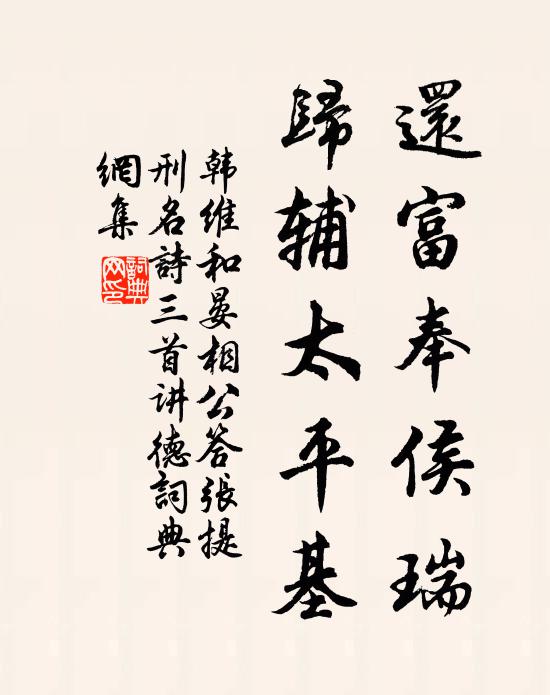 還富奉侯瑞
歸辅太平基
韩維和晏相公答張提
刑名詩三首讲德詞典
網集
詞典
网印